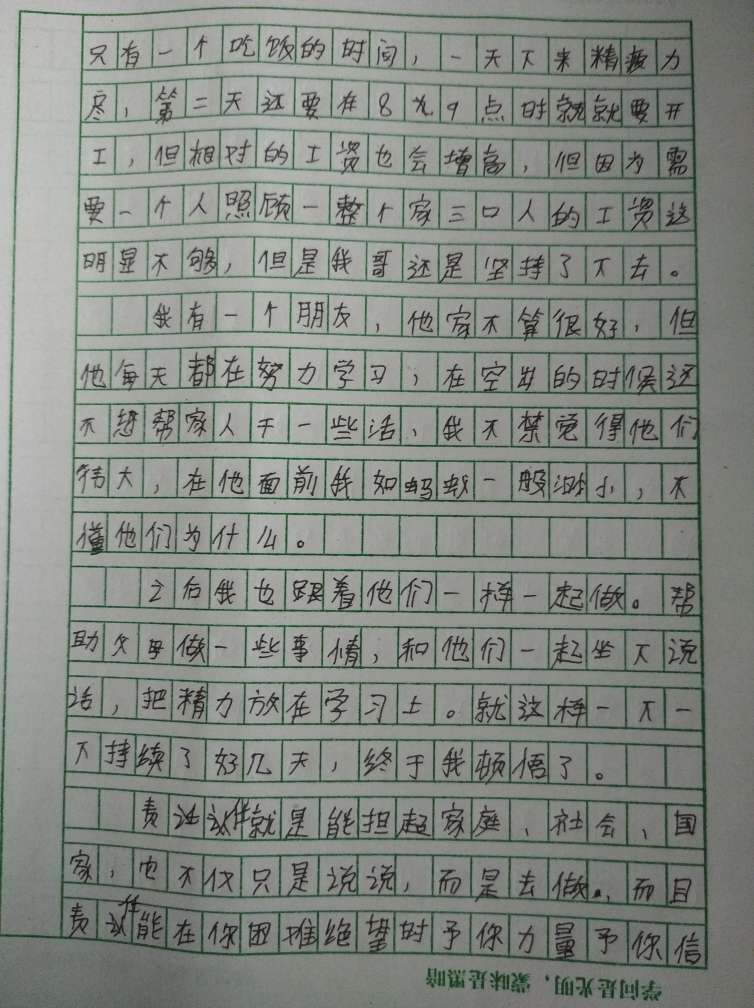 只有一个吃饭的时间，一天下来精疲力
尽，第二天还要在8九9点时就就要开
工，但相对的工资也会增高，但因为需
要一个人照顾一整个家三口人的工资这
明显不够，但是我哥还是坚持了下去。
我有一个朋友，他家不算很好，但
他每天都在努力学习，在空出的时候还
不想帮家人干一些活，我不禁觉得他们
伟大，在他面前我如蚂蚁一般渺小，不
懂他们为什么。
之后我也跟着他们一样一起做。帮
助父母做一些事情，和他们一起坐下说
话，把精力放在学习上。就这样一下一
下持续了好几天，终于我顿悟了。
责这件就是能担起家庭、社会、国
家，也不仅只是说说，而是去做。而且
责 能在你困难绝望时予你力量予你信
学问是光明，蒙昧是黑暗